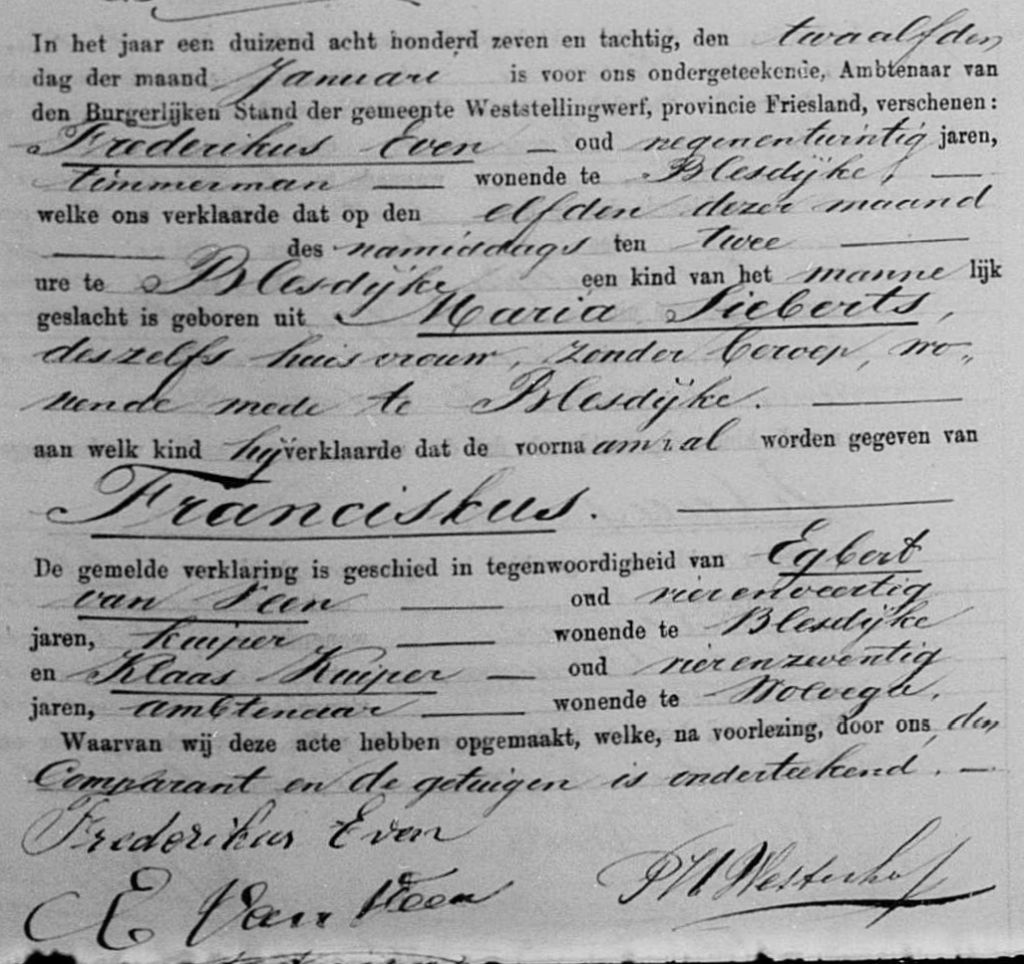 In het jaar een duizend acht honderd zeven en tachtig, den twaalfden
dag der maand Januari is voor ons ondergeteekende, Ambtenaar van
den Burgerlijken Stand der gemeente Weststellingwerf, provincie Friesland, verschenen:
Frederikus Even — oud negenentwintig jaren,
timmerman — wonende te Blesdijke, —
welke ons verklaarde dat op den elfden dezer maand
— des namiddags ten twee —
ure te Blesdijke een kind van het mannelijk
geslacht is geboren uit Maria Sieberts,
deszelfs huisvrouw, zonder beroep, wo„
nende mede te Blesdijke. —
aan welk kind hij verklaarde dat de voornaam zal worden gegeven van
Franciskus. —
De gemelde verklaring is geschied in tegenwoordigheid van Egbert
van Veen — oud vierenveertig
jaren, kuiper — wonende te Blesdijke
en Klaas Kuiper — oud vierenzeventig
jaren, ambtenaar — wonende te Wolvega.
Waarvan wij deze acte hebben opgemaakt, welke, na voorlezing, door ons, den
Comparant en de getuigen is onderteekend. —
Frederikus Even
E van Veen
Westerhof